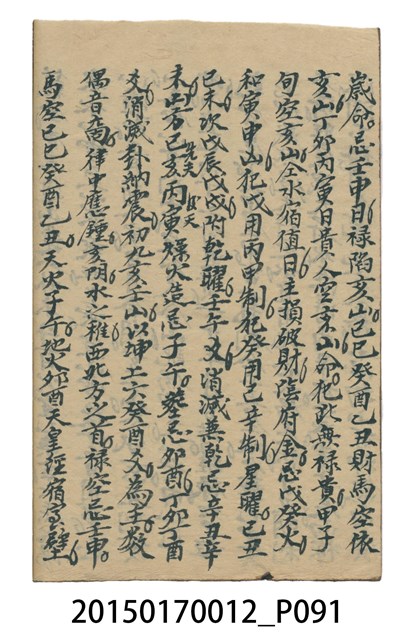 歲命忌壬申日祿陷亥山己巳癸酉乙丑財馬空依
亥山丁卯丙寅日貴人空亥山命犯此無祿貴甲子
旬空亥山全水宿值日主損破財陰府金忌戊癸火
和寅申山犯戊用丙甲制犯癸用己辛制星曜己丑
己未次戊辰戊戌附乾曜壬午爻消滅兼乾忌辛丑辛
未山方己亥先天丙寅後天燥火造忌子午葬忌卯酉丁卯丁酉
爻消滅卦納震初九亥壬山以坤土六癸酉爻為主殺
偶音裔律中應鍾亥陰水之稚西北方之首祿空忌壬申
馬空己巳癸酉乙丑天火子午地火卯酉天皇經宿室壁
20150170012_P091